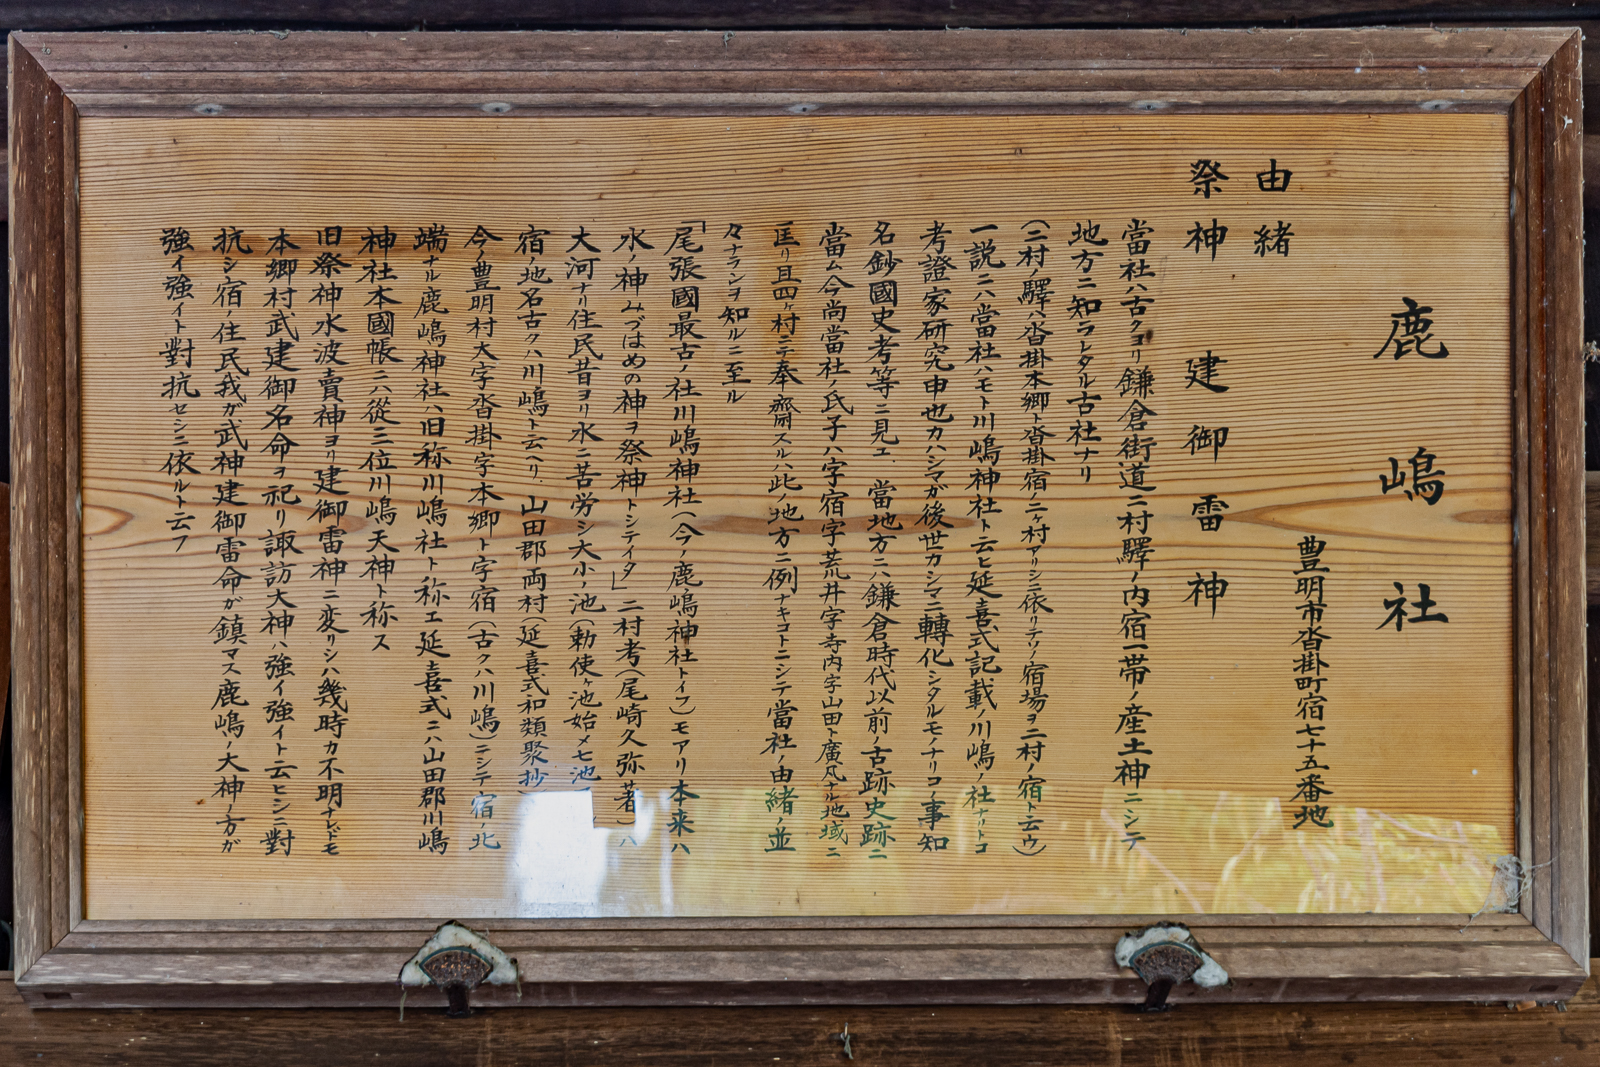 鹿嶋社
豊明市沓掛町宿七十五番地
由緒
祭神 建御雷神
當社ハ古クヨリ鎌倉街道二村驛ノ内宿一帯ノ産土神ニシテ
地方ニ知ラレタル古社ナリ
(二村ノ驛ハ沓掛本郷ト沓掛宿ノ二ヶ村アリシニ依リテソノ宿場ヲ二村ノ宿ト云ウ)
一説ニハ當社ハモト川嶋神社ト云ヒ延喜式記載ノ川嶋ノ社ナリトコ
考證家研究申也カハシマガ後世カシマニ轉化シタルモノナリコノ事知
名鈔國史考等ニ見エ.當地方ニハ鎌倉時代以前ノ古跡史跡ニ
當ム今尚當社ノ氏子ハ字宿字荒井字寺内字山田ト廣凡ナル地域ニ
匡リ且四ヶ村ニテ奉齋スルハ此ノ地方ニ例ナキコトニシテ當社ノ由緒ノ並
々ナランヲ知ルニ至ル
「尾張國最古ノ社川嶋神社(今ノ鹿嶋神社トイフ)モアリ本来ハ
水ノ神みづはめの神ヲ祭神トシテイタ」二村考(尾崎久弥著)ハ
大河ナリ住民昔ヨリ水ニ苦労シ大小ノ池(勅使ヶ池始メ七池
宿ノ地名古クハ川嶋ト云ヘリ.山田郡両村(延喜式和類聚抄)
今ノ豊明村大字沓掛字本郷ト字宿(古クハ川嶋)ニシテ宿ノ北
端ナル鹿嶋神社ハ旧称川嶋社ト称エ延喜式ニハ山田郡川嶋
神社本國帳ニハ從三位川嶋天神ト称ス
旧祭神水波賣神ヨリ建御雷神ニ変リシハ幾時カ不明ナレドモ
本郷村武建御名命ヲ祀リ諏訪大神ハ強イ強イト云ヒシニ對
抗シ宿ノ住民我ガ武神建御雷命ガ鎮マス鹿嶋ノ大神ノ方ガ
強イ強イト對抗セシニ依ルト云フ